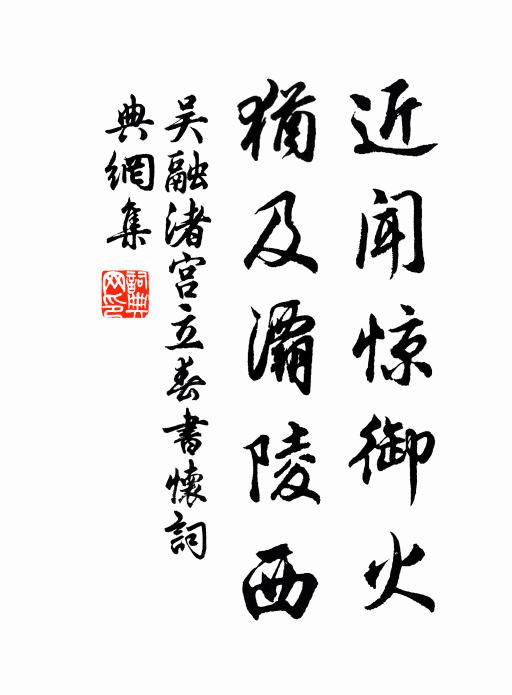 近闻惊御火
犹及灞陵西
吴融渚宫立春書懷詞
典網集
詞典网印